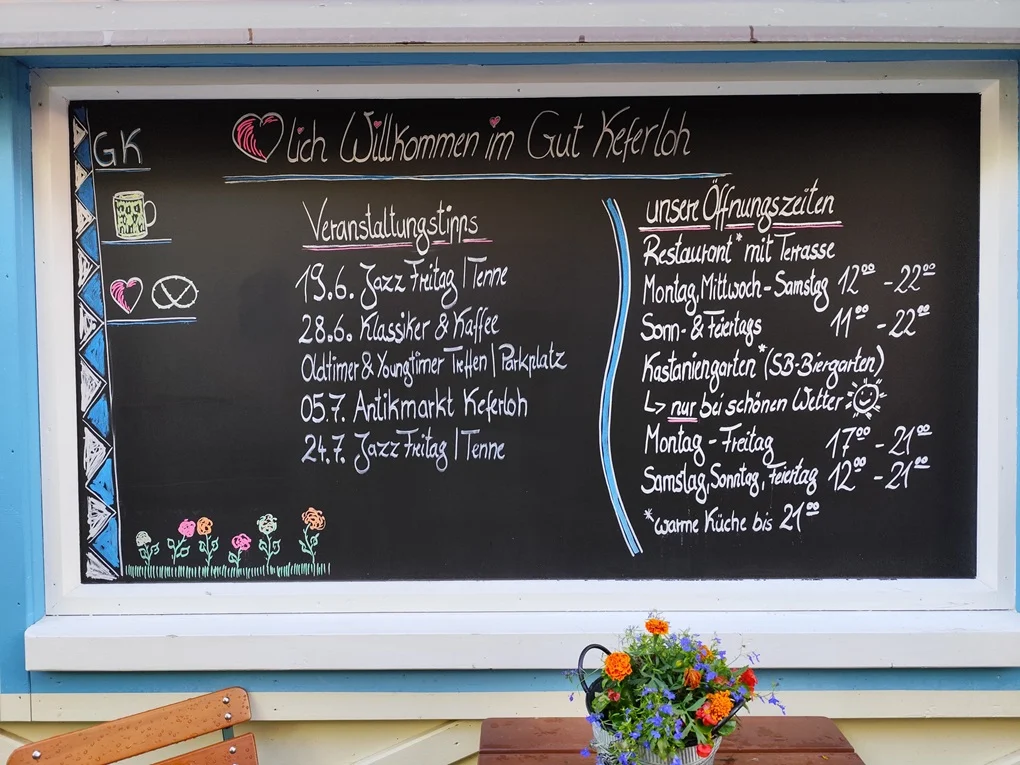 GK
lich Willkommen im Gut Keferloh
Veranstaltungstipps
19.6. Jazz Freitag | Tenne
28.6. Klassiker & Kaffee
Oldtimer & Youngtimer Treffen | Parkplatz
05.7. Antikmarkt Keferloh
24.7. Jazz Freitag | Tenne
unsere Öffnungszeiten
Restaurant* mit Terrasse
Montag, Mittwoch - Samstag 12⁰⁰ - 22⁰⁰
Sonn- & Feiertags 11⁰⁰ - 22⁰⁰
Kastaniengarten* (SB-Biergarten)
↳ nur bei schönen Wetter
Montag - Freitag 17⁰⁰ - 21⁰⁰
Samstag, Sonntag, Feiertag 12⁰⁰ - 21⁰⁰
*warme Küche bis 21⁰⁰